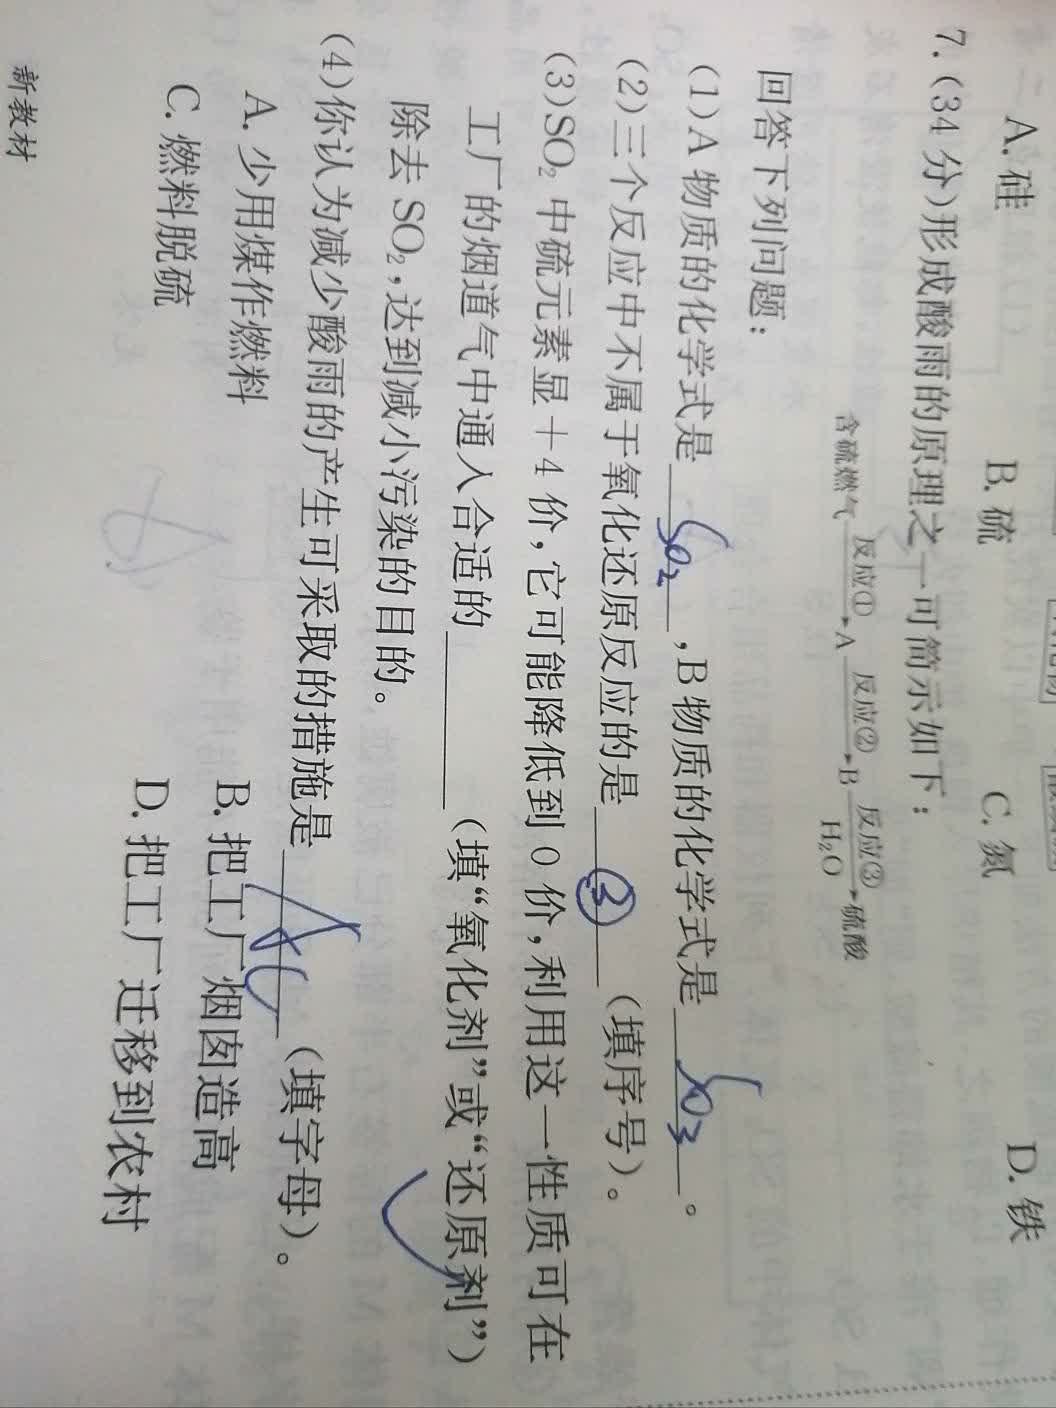 A. 硅 B. 硫 C. 氮 D. 铁
7. (34 分)形成酸雨的原理之一可简示如下：
含硫燃气 反应① A 反应② B 反应③ 硫酸
H₂O
回答下列问题：
(1)A 物质的化学式是 SO₂ ，B 物质的化学式是 SO₃ 。
(2)三个反应中不属于氧化还原反应的是 ③ (填序号)。
(3)SO₂ 中硫元素显＋4 价，它可能降低到 0 价，利用这一性质可在
工厂的烟道气中通入合适的______(填“氧化剂”或“还原剂”)
除去 SO₂，达到减小污染的目的。
(4)你认为减少酸雨的产生可采取的措施是 AC (填字母)。
A. 少用煤作燃料 B. 把工厂烟囱造高
C. 燃料脱硫 D. 把工厂迁移到农村
新教材